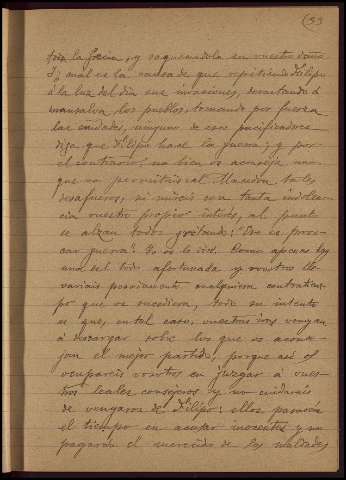 (53
toda la Grecia, y saqueándola en vuestro daño
Y ¿cual es la causa de que repitiendo Filipo
á la luz del dia sus invasiones, devastando á
mansalva los pueblos, tomando por fuerza
las ciudades, ninguno de esos pacificadores
diga que Filipo hace la guerra; y por
el contrario: no bien os aconseja uno
que no permitáis al Macedon tales
desafueros, ni mireis con tanta indolen-
cia vuestro propio interés, al punto
se alzan todos gritando: Eso es provo-
car guerra? Yo os lo diré. Como apenas hay
uno del todo afortunada y vosotros lle-
variais pesadamente cualquiera contratiem-
po que os sucediera, todo su intento
es que, en tal caso, vuestras iras vengan
á descargar sobre los que os aconse-
jan el mejor partido, porque así os
ocupareis vosotros en juzgar á vues-
tros leales consejeros y no cuidaréis
de vengaros de Filipo: ellos pasarán
el tiempo en acusar inocentes y no
pagarán el merecido de sus maldades